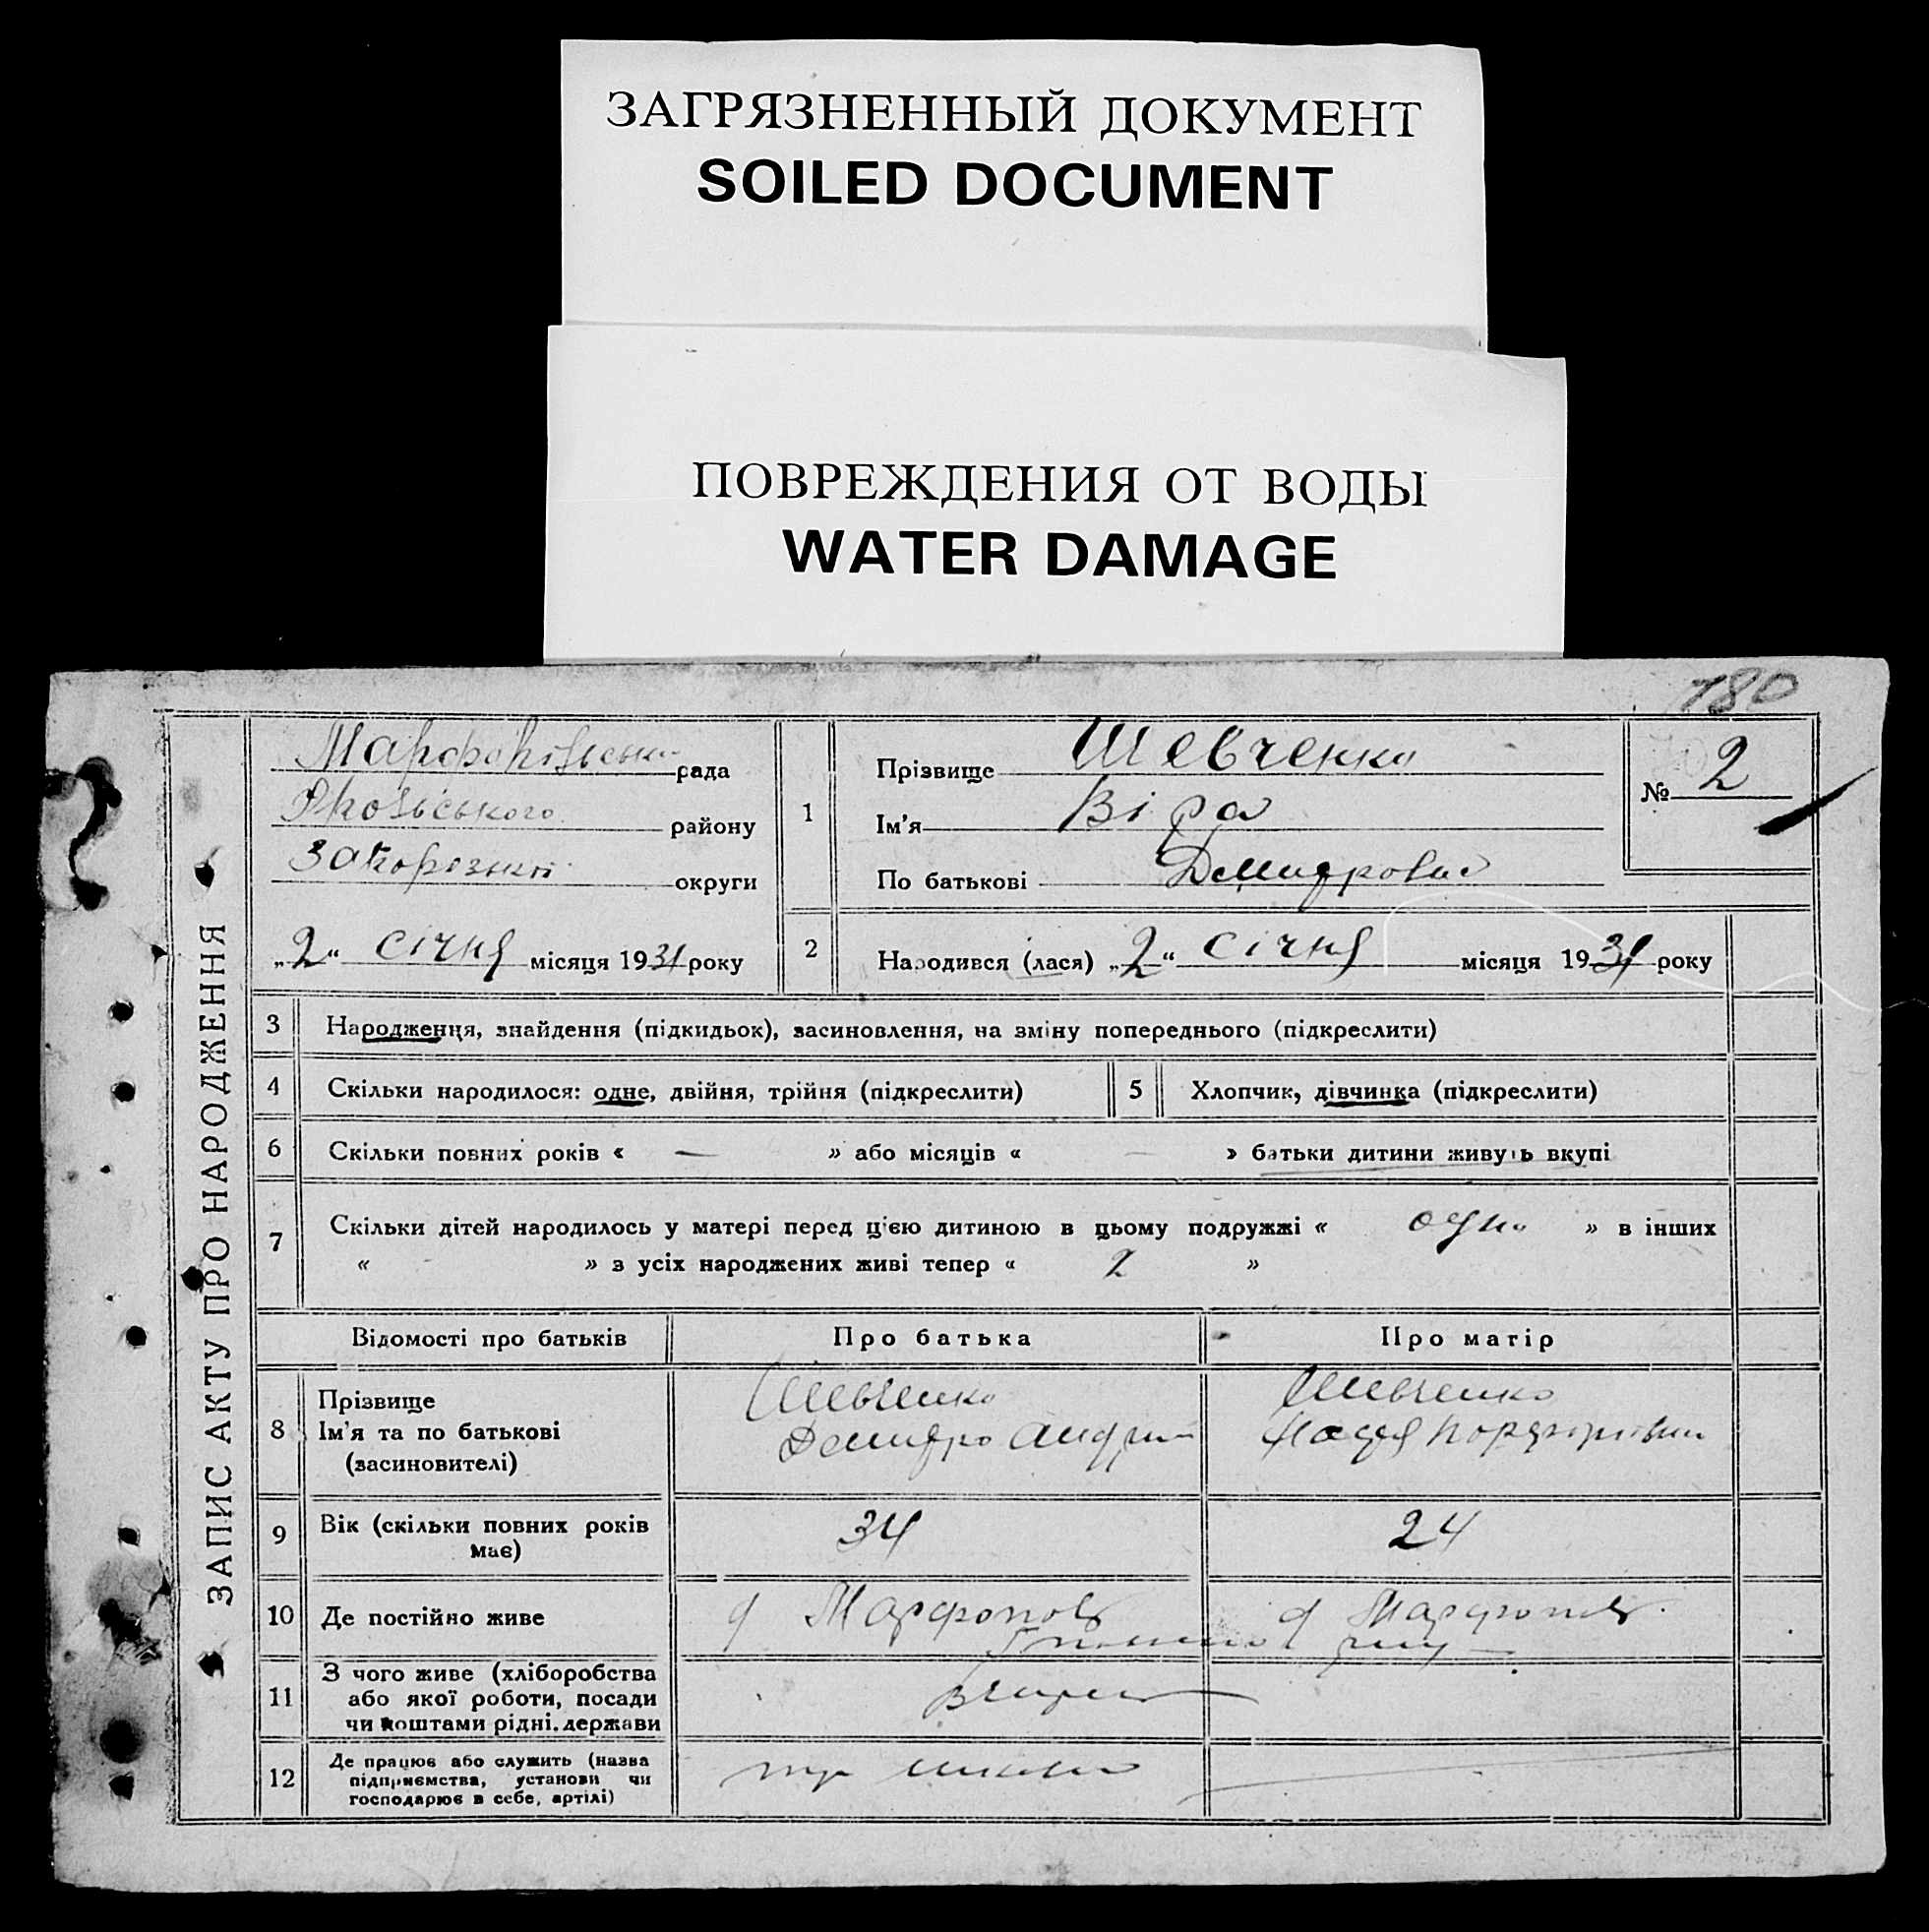 ЗАГРЯЗНЕННЫЙ ДОКУМЕНТ
SOILED DOCUMENT
ПОВРЕЖДЕНИЯ ОТ ВОДЫ
WATER DAMAGE
180
ЗАПИС АКТУ ПРО НАРОДЖЕННЯ
рада
району
округи
„2“ січня місяця 1931 року
1
Прізвище Шевченко
Ім'я Віра
По батькові
№ 2
2 Народився (лася) „2“ січня місяця 1931 року
3 Народження, знайдення (підкидьок), засиновлення, на зміну попереднього (підкреслити)
4 Скільки народилося: одне, двійня, трійня (підкреслити)
5 Хлопчик, дівчинка (підкреслити)
6 Скільки повних років « — » або місяців « — » батьки дитини живуть вкупі
7 Скільки дітей народилось у матері перед цією дитиною в цьому подружжі « одно » в інших
« - » з усіх народжених живі тепер « 2 »
Відомості про батьків Про батька Про матір
8 Прізвище Шевченко Шевченко
Ім'я та по батькові Демидро
(засиновителі)
9 Вік (скільки повних років має) 34 24
10 Де постійно живе
11 З чого живе (хліборобства
або якої роботи, посади
чи коштами рідні, держави
12 Де працює або служить (назва
підприємства, установи чи
господарює в себе, артілі)